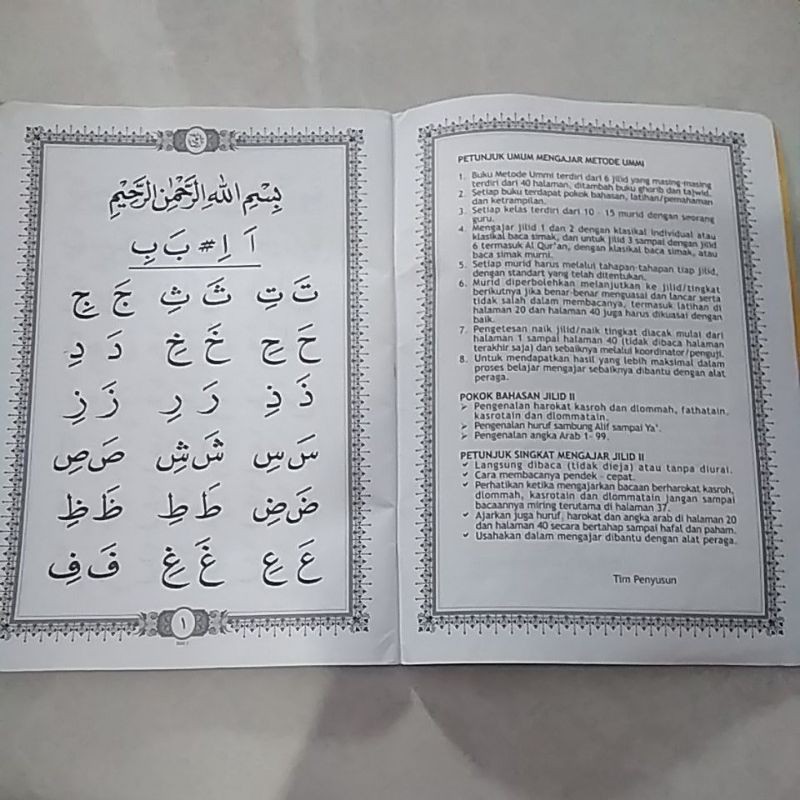 بِسْمِ اللهِ الرَّحْمٰنِ الرَّحِيْمِ
اَ اِ # بَ بِ
تَ تِ ثَ ثِ جَ جِ
حَ حِ خَ خِ دَ دِ
ذَ ذِ رَ رِ زَ زِ
سَ سِ شَ شِ صَ صِ
ضَ ضِ طَ طِ ظَ ظِ
عَ عِ غَ غِ فَ فِ
١
PETUNJUK UMUM MENGAJAR METODE UMMI
1. Buku Metode Ummi terdiri dari 6 jilid yang masing-masing
terdiri dari 40 halaman, ditambah buku ghorib dan tajwid.
2. Setiap buku terdapat pokok bahasan, latihan/pemahaman
dan ketrampilan.
3. Setiap kelas terdiri dari 10 - 15 murid dengan seorang
guru.
4. Mengajar jilid 1 dan 2 dengan klasikal individual atau
klasikal baca simak, dan untuk jilid 3 sampai dengan jilid
6 termasuk Al Qur'an, dengan klasikal baca simak, atau
baca simak murni.
5. Setiap murid harus melalui tahapan-tahapan tiap jilid,
dengan standart yang telah ditentukan.
6. Murid diperbolehkan melanjutkan ke jilid/tingkat
berikutnya jika benar-benar menguasai dan lancar serta
tidak salah dalam membacanya, termasuk latihan di
halaman 20 dan halaman 40 juga harus dikuasai dengan
baik.
7. Pengetesan naik jilid/naik tingkat diacak mulai dari
halaman 1 sampai halaman 40 (tidak dibaca halaman
terakhir saja) dan sebaiknya melalui koordinator/penguji.
8. Untuk mendapatkan hasil yang lebih maksimal dalam
proses belajar mengajar sebaiknya dibantu dengan alat
peraga.
POKOK BAHASAN JILID II
➢ Pengenalan harokat kasroh dan dlommah, fathatain,
kasrotain dan dlommatain.
➢ Pengenalan huruf sambung Alif sampai Ya'.
➢ Pengenalan angka Arab 1- 99.
PETUNJUK SINGKAT MENGAJAR JILID II
✓ Langsung dibaca (tidak dieja) atau tanpa diurai.
✓ Cara membacanya pendek - cepat.
✓ Perhatikan ketika mengajarkan bacaan berharokat kasroh,
dlommah, kasrotain dan dlommatain jangan sampai
bacaannya miring terutama di halaman 37.
✓ Ajarkan juga huruf, harokat dan angka arab di halaman 20
dan halaman 40 secara bertahap sampai hafal dan paham.
✓ Usahakan dalam mengajar dibantu dengan alat peraga.
Tim Penyusun